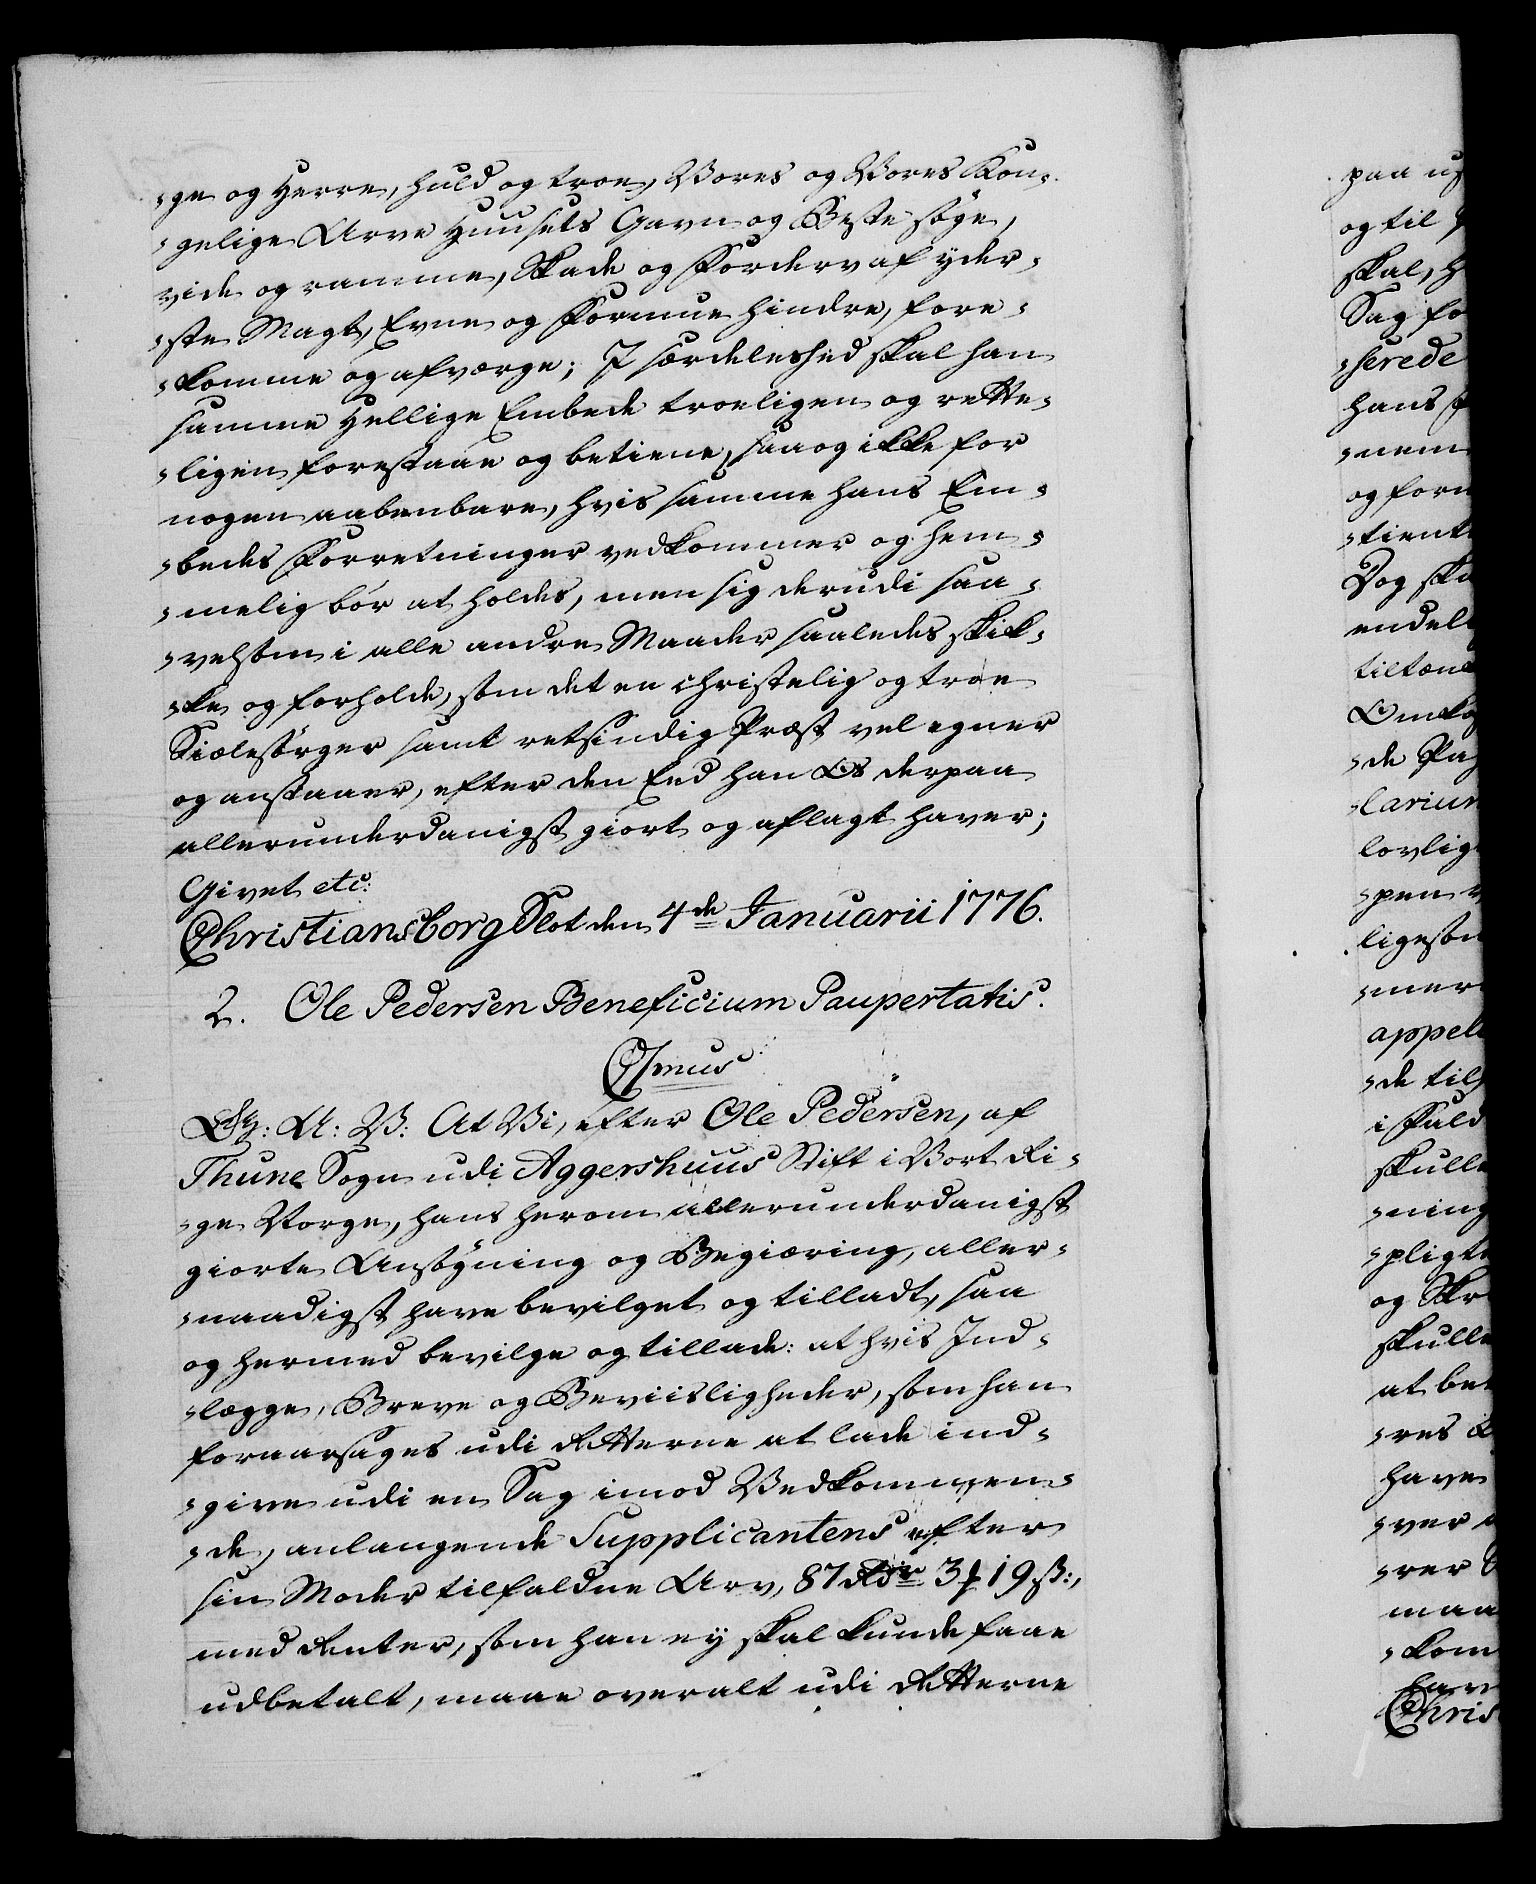 -ge og Herre, huld og troe, Vores og Vores Kon-
-gelige Arve Huusets Gavn og Beste søge,
vide og ramme, Skade og Forderv af yder-
-ste Magt, Evne og Formue hindre, fore-
-komme og afværge; I særdeleshed skal han
samme Hellige Embede troeligen og rette-
-ligen forestaae og betiene, saa og ikke for
nogen aabenbare, hvis samme hans Em-
-bedes Forretninger vedkommer og hem-
-melig bør at holdes, men sig derudi saa-
-velsom i alle andre Maader saaledes skik-
-ke og forholde, som det en christelig og troe
Siælesørger samt retsindig Præst vel egner
og anstaaer, efter den Eed han Os derpaa
allerunderdanigst giort og aflagt haver;
Givet etc:
Christiansborg Slot den 4de Januarii 1776.
2. Ole Pedersen Beneficium Paupertatis.
C7mus
A: V: At Vi, efter Ole Pedersen, af
Thune Sogn udi Aggershuus Stift i Vort Ri-
-ge Norge, hans herom allerunderdanigst
giorte Ansøgning og Begiæring, aller-
-naadigst have bevilget og tilladt, saa
og hermed bevilge og tillade: at hvis Ind-
-lægge, Breve og Beviisligheder, som han
foraarsages udi Retterne at lade ind-
-give udi en Sag imod Vedkommen-
-de, anlangende Supplicantens efter
sin Moder tilfaldne Arv, 87 Rdr 3 ƒ 19 ß:,
med Renter, som han ey skal kunde faae
udbetalt, maae overalt udi Retterne
paa
og til
skal, h
Sag fo
-serede
hans
-nem
og forn
-tient
Dog ska
endel
tiltæn
Omko
-de Pa
-larium
lovlig
-pen
ligesom
-mer
appel
-de til
i Fald
skulle
-ning
-pligt
og Skr
skulle
at be
-res
have
-ver
-rer
maa
-kom
Chris